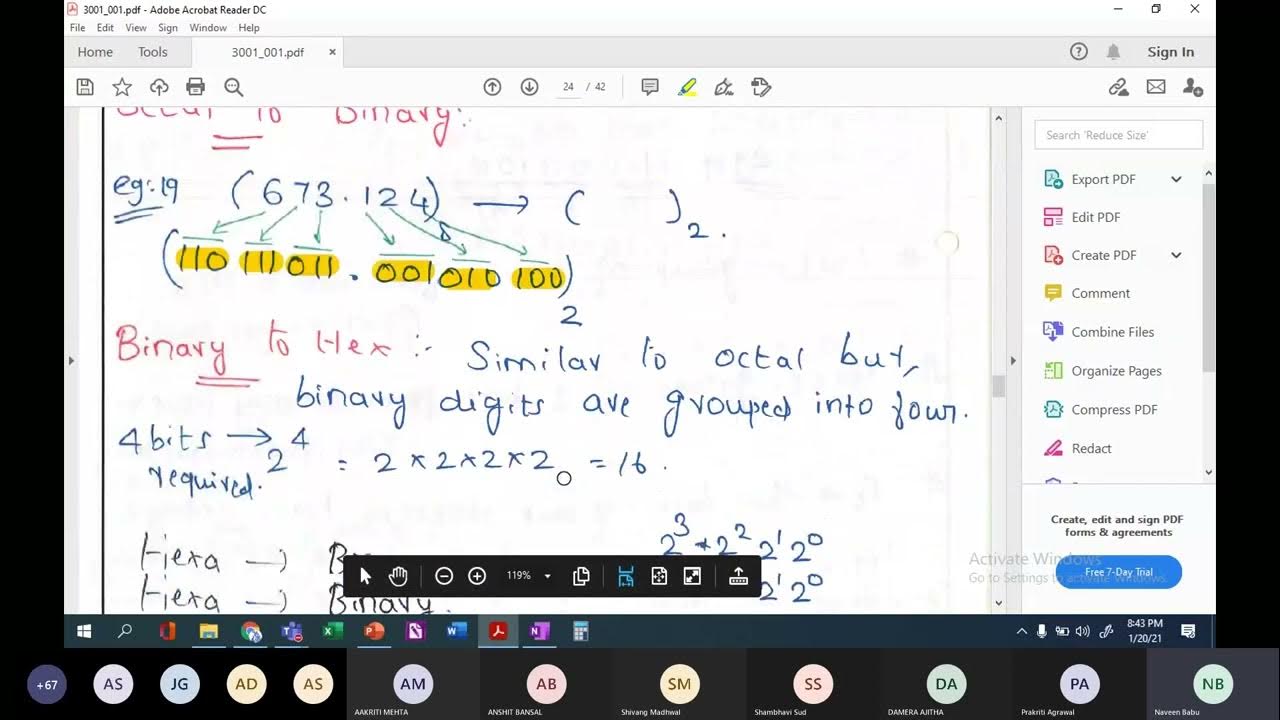 3001_001.pdf - Adobe Acrobat Reader DC
File Edit View Sign Window Help
Home Tools 3001_001.pdf × Sign In
24 / 42
Octal to Binary:
eg:19 (673.124)8 → ( )2.
(110 111 011 . 001 010 100)2
Binary to Hex :- Similar to octal but,
binary digits are grouped into four.
4 bits → 2^4 = 2 × 2 × 2 × 2 = 16.
required.
2^3 2^2 2^1 2^0
Hexa →
Hexa → Binary.
2^1 2^0
119%
Search 'Reduce Size'
Export PDF
Edit PDF
Create PDF
Comment
Combine Files
Organize Pages
Compress PDF
Redact
Create, edit and sign PDF
forms & agreements
Free 7-Day Trial
Activate Windows
Go to Settings to activate Windows.
8:43 PM
1/20/21
+67 AS JG AD AS AM AB SM SS DA PA NB
AAKRITI MEHTA ANSHIT BANSAL Shivang Madhwal Shambhavi Sud DAMERA AJITHA Prakriti Agrawal Naveen Babu